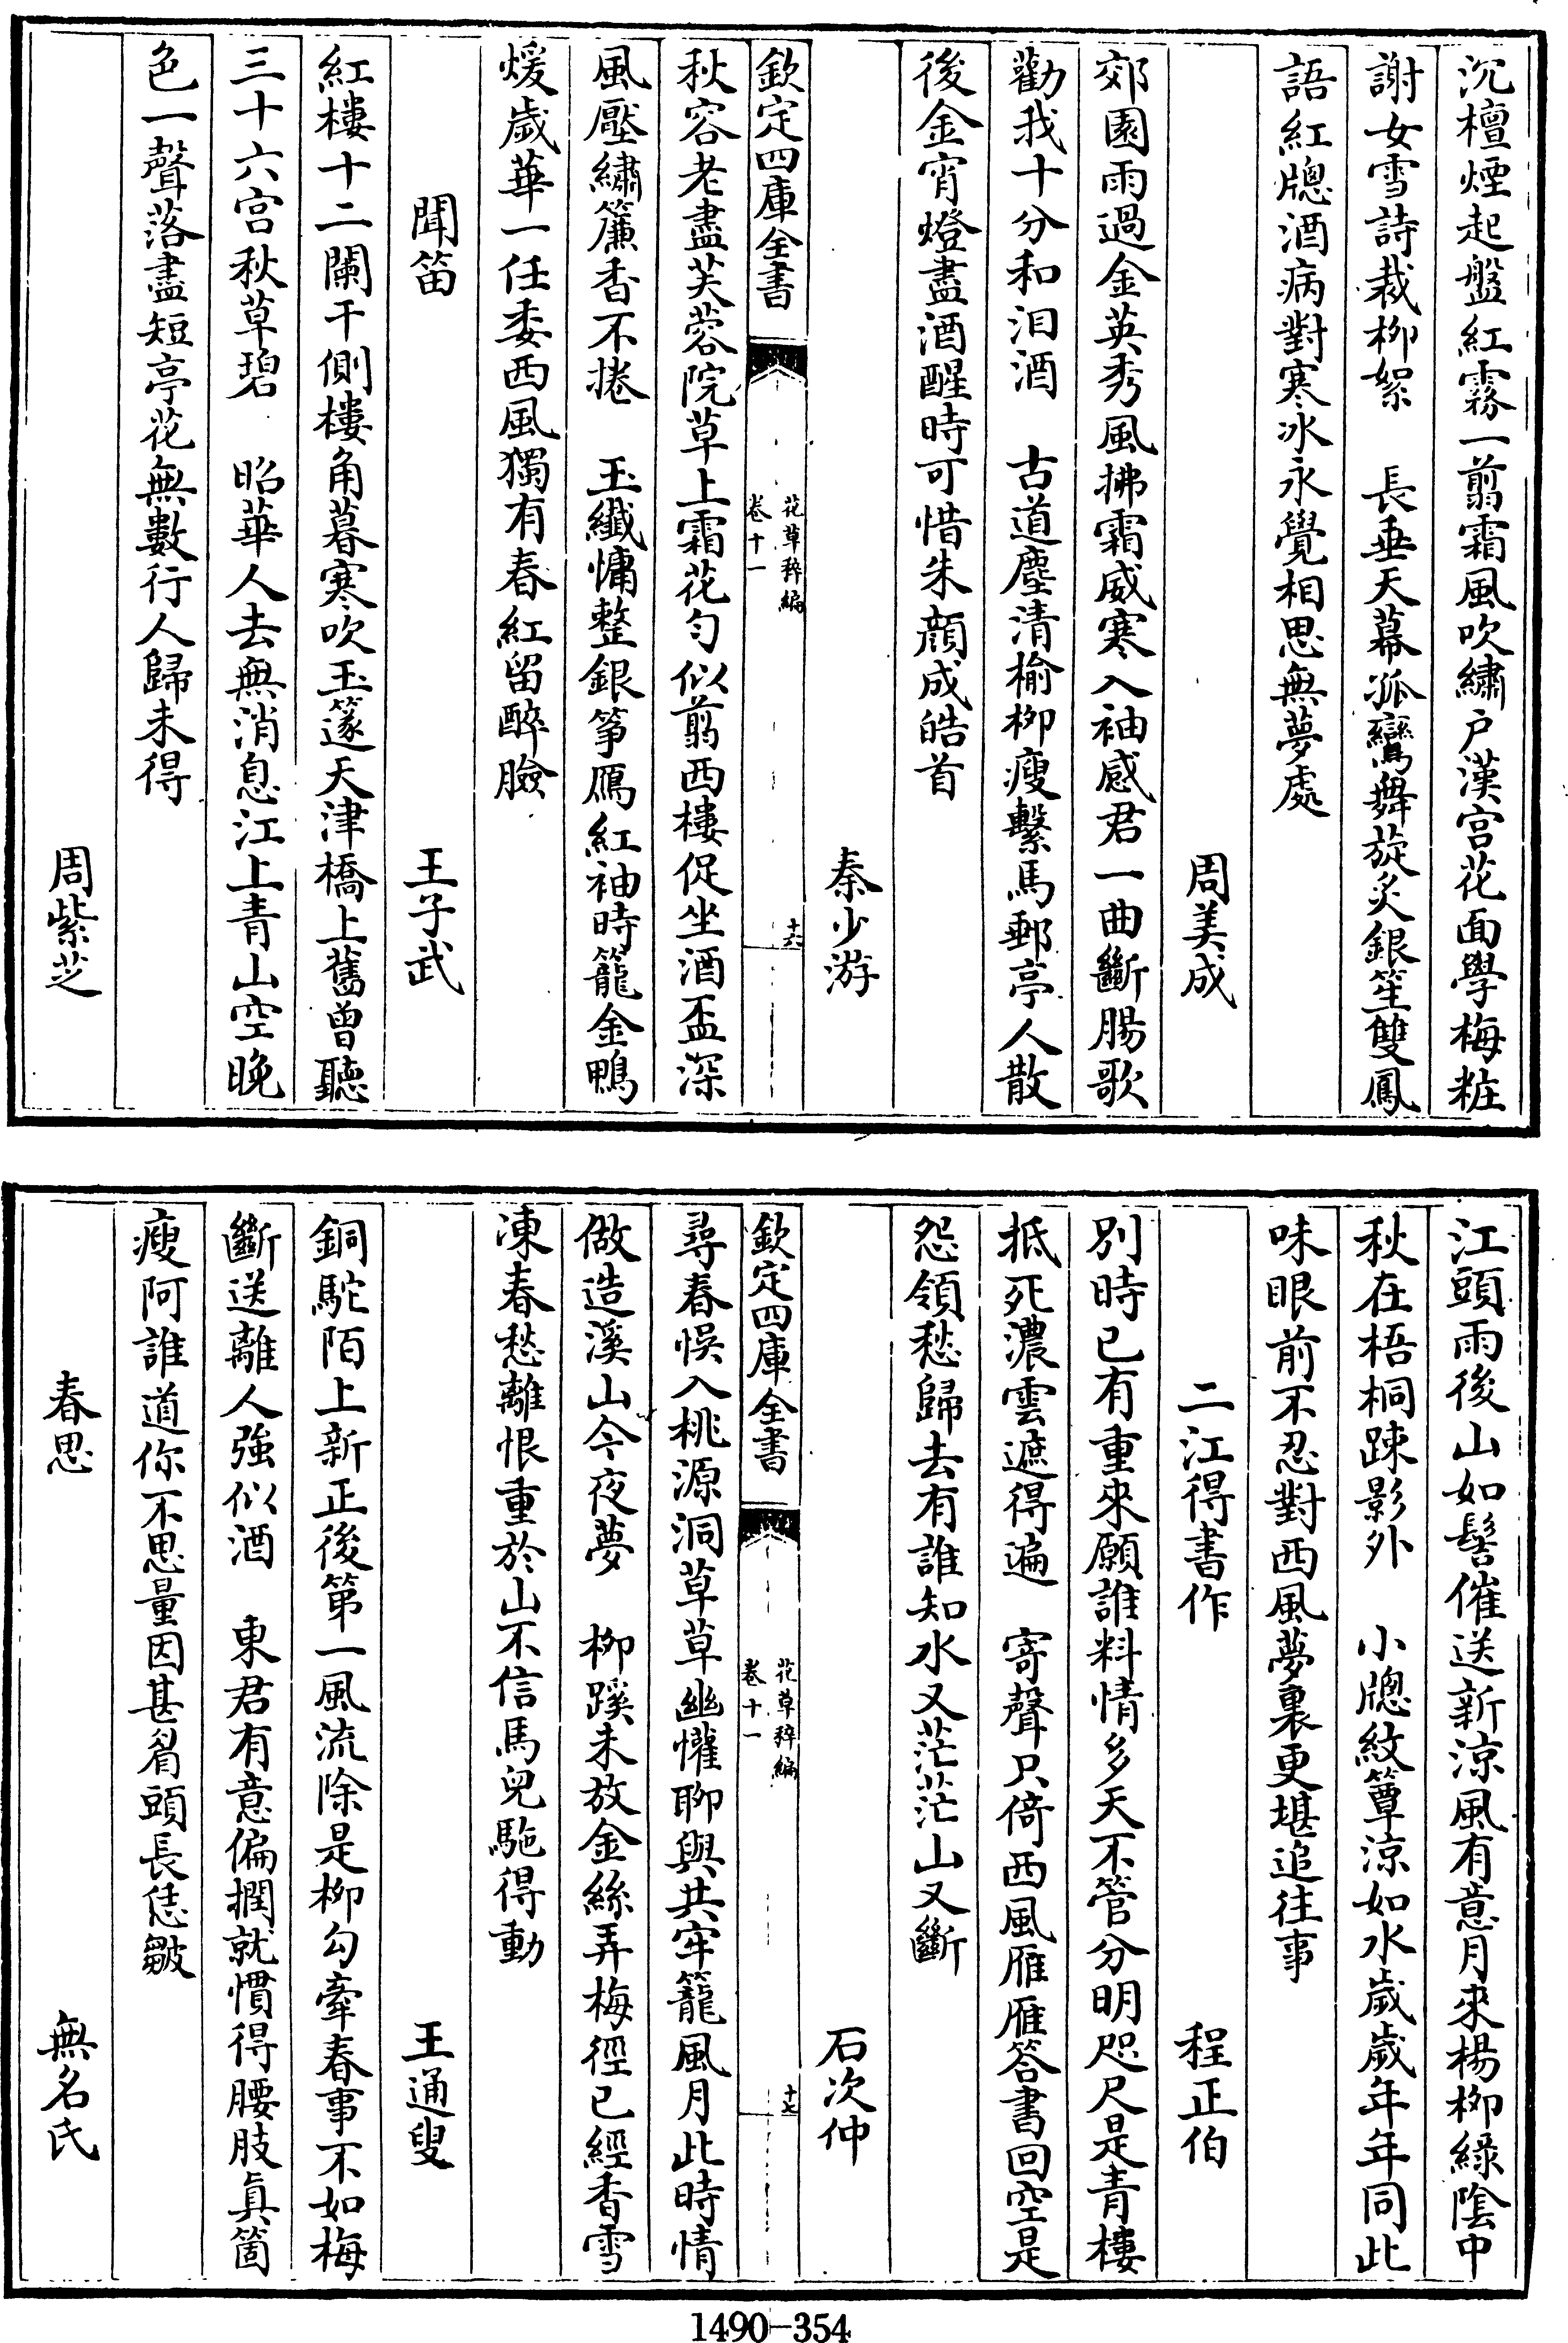 沉檀煙起盤紅霧一翦霜風吹繡戶漢宫花面學梅粧
謝女雪詩裁柳絮　長垂天幕孤鸞舞旋炙銀笙雙鳳
語紅牕酒病對寒冰永覺相思無夢處
周美成
郊園雨過金英秀風拂霜威寒入袖感君一曲斷腸歌
勸我十分和泪酒　古道塵清榆柳瘦繫馬郵亭人散
後金宵燈盡酒醒時可惜朱顔成皓首
秦少游
欽定四庫全書　花草稡編　卷十一　十六
秋容老盡芙蓉院草上霜花匀似翦西樓促坐酒盃深
風壓繡簾香不捲　玉纖慵整銀筝鴈紅袖時籠金鴨
煖歲華一任委西風獨有春紅留醉臉
聞笛　王子武
紅樓十二闌干側樓角暮寒吹玉篴天津橋上舊曾聽
三十六宫秋草碧　昭華人去無消息江上青山空晚
色一聲落盡短亭花無數行人歸未得
周紫芝
江頭雨後山如髻催送新涼風有意月來楊柳綠陰中
秋在梧桐踈影外　小牕紋簟涼如水歲歲年年同此
味眼前不忍對西風夢裏更堪追往事
二江得書作　程正伯
別時已有重來願誰料情多天不管分明咫尺是青樓
抵死濃雲遮得遍　寄聲只倚西風雁雁答書回空是
怨領愁歸去有誰知水又茫茫山又斷
石次仲
欽定四庫全書　花草稡編　卷十一　十七
尋春悞入桃源洞草草幽懽聊與共牢籠風月此時情
做造溪山今夜夢　柳蹊未放金絲弄梅徑已經香雪
凍春愁離恨重於山不信馬兒駞得動
王通叟
銅駝陌上新正後第一風流除是柳勾牽春事不如梅
斷送離人強似酒　東君有意偏撋就慣得腰肢真箇
瘦阿誰道你不思量因甚眉頭長恁皺
春思　無名氏
1490-354